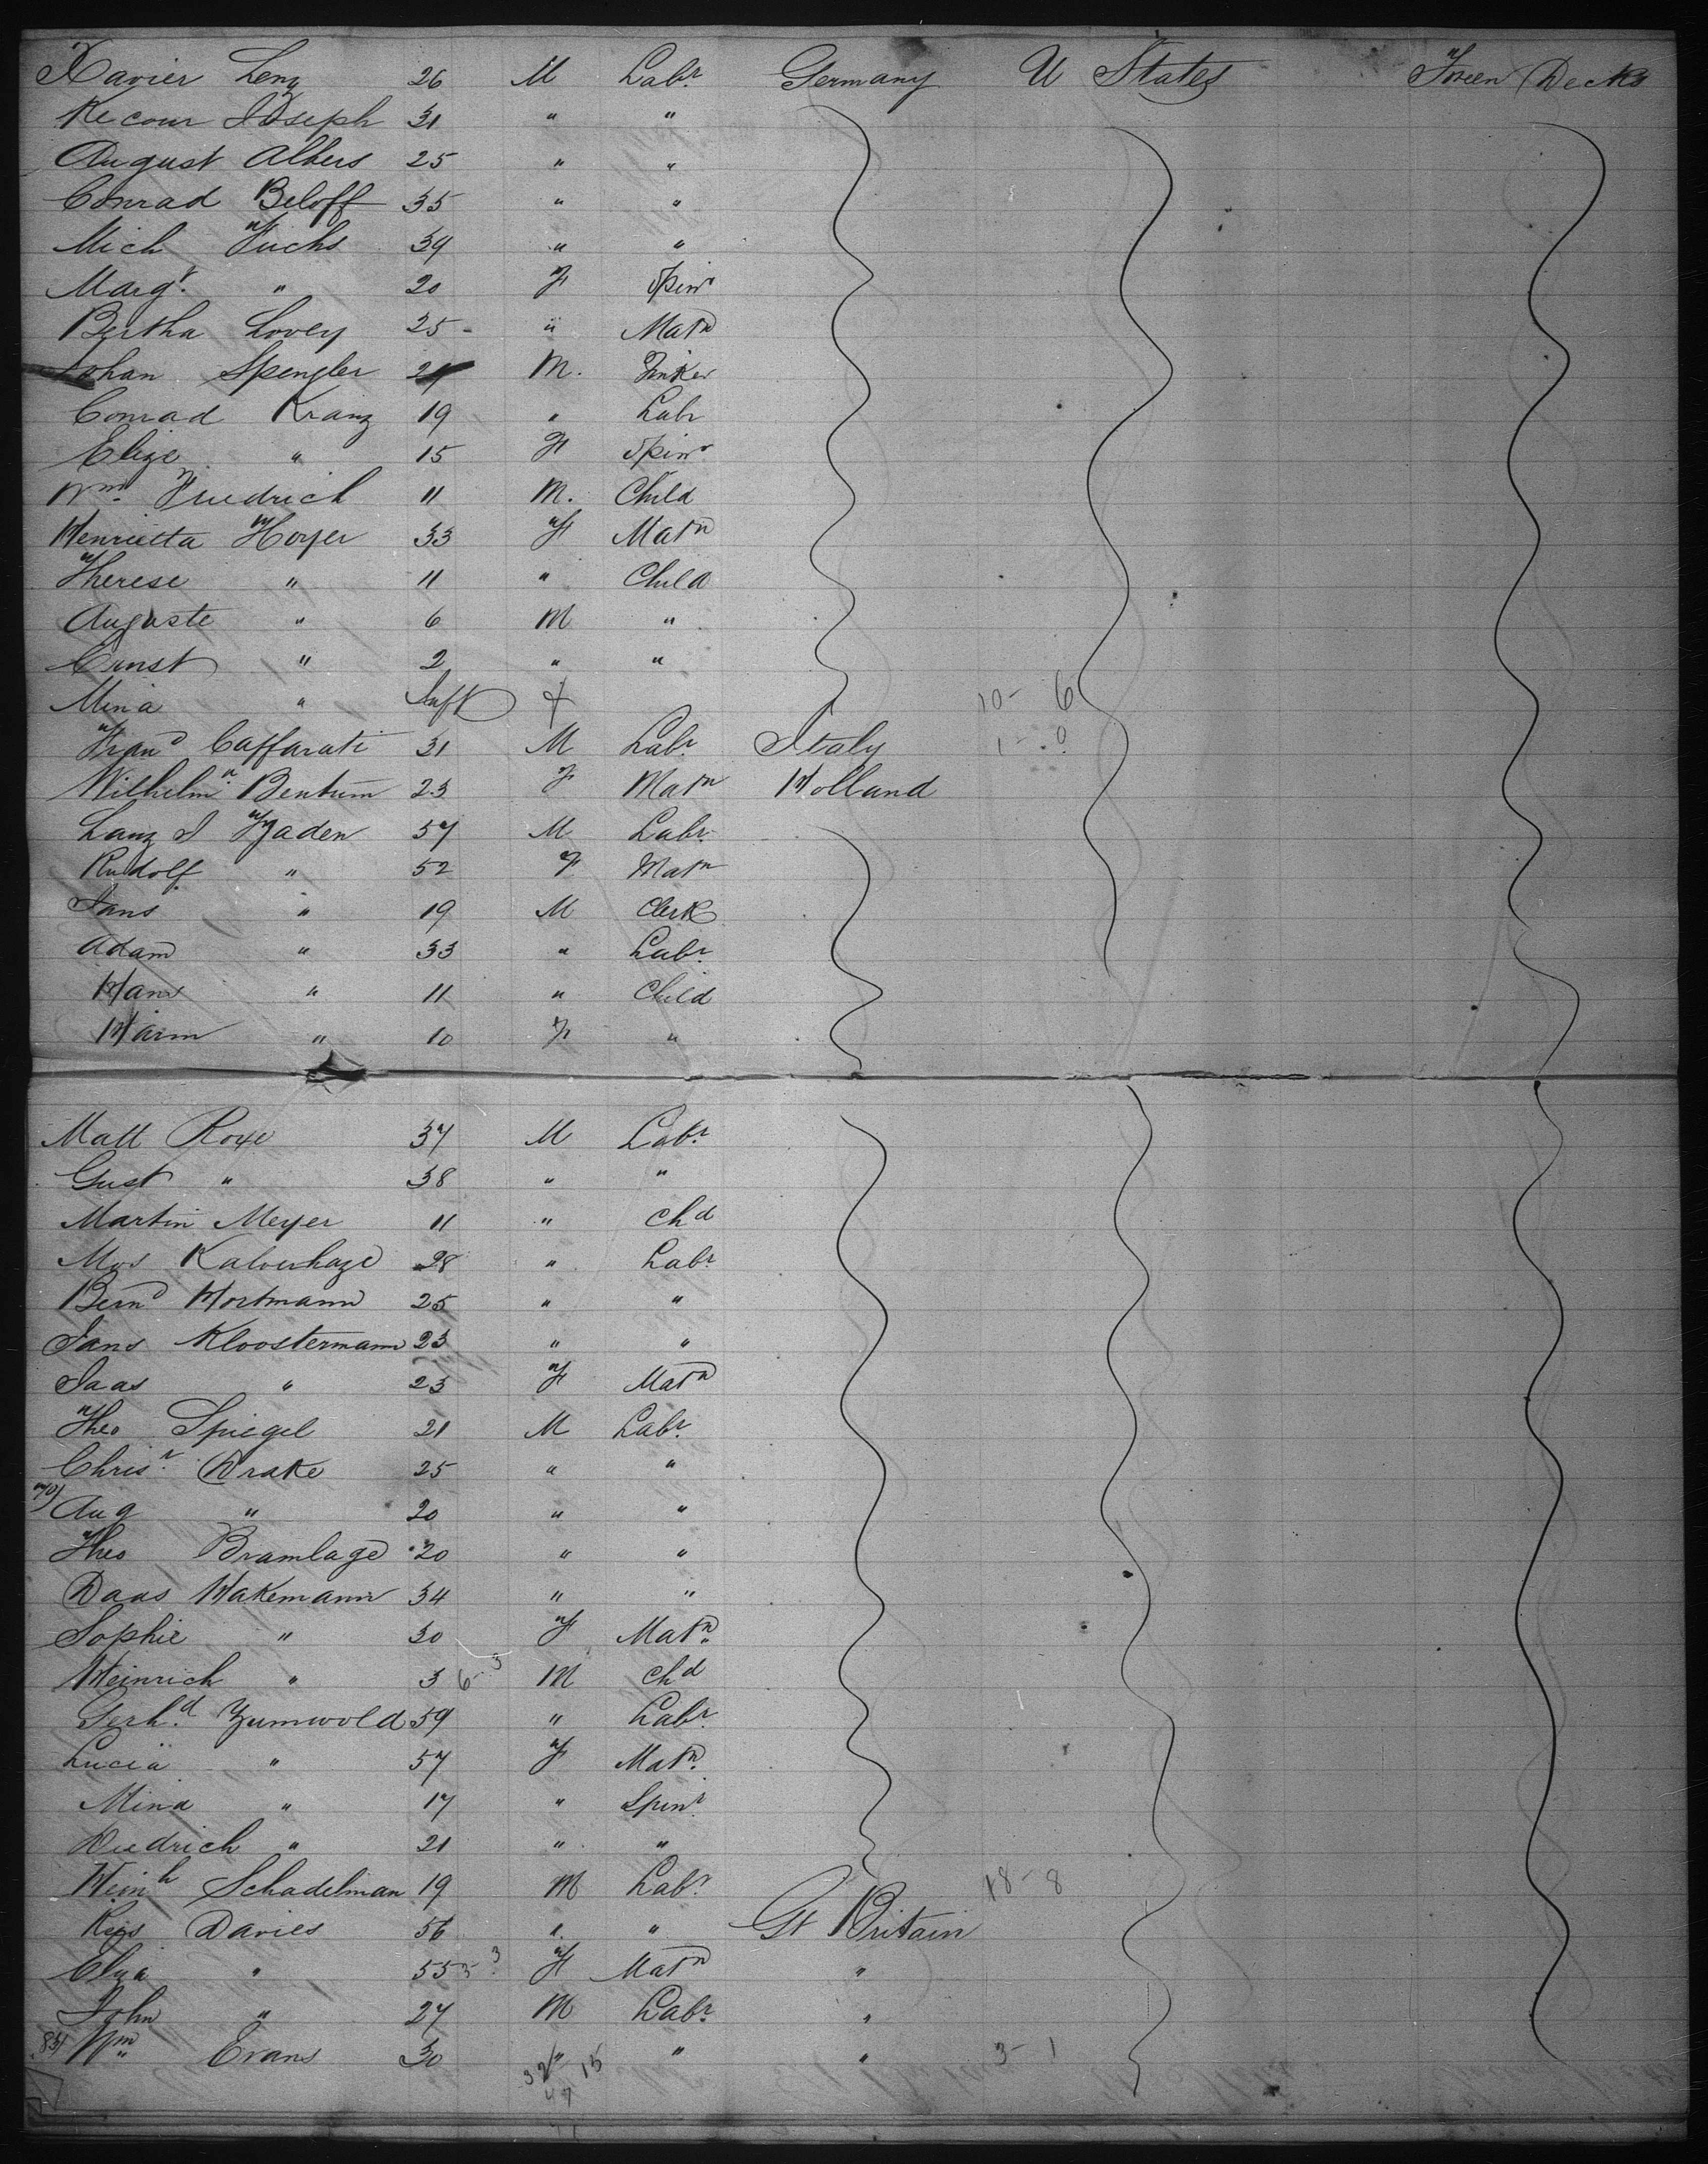 Xavier Lenz 26 M Labr. Germany U States Foreen Decks
Recour Joseph 31 " "
August Albers 25 " "
Conrad Beloff 35 " "
Mich Fuchs 39 " "
Margt. " 20 F Spinr
Bertha Lovey 25 - " Matn
Johan Spengler M. Tinker
Conrad Kranz 19 " Labr
Elize " 15 F Spinr
Wm. Friedrich 11 M. Child
Henrietta Hoyer 33 F Matn
Therese " 11 " Child
Auguste " 6 M "
Ernst " 2 " "
Mina " Inft 10 - 6
Frand Caffarati 31 M Labr. Italy
Wilhelma Bentum 23 F Matn Holland
Lanz J 57 M Labr.
Rudolf " 52 F Matn
Jans " 19 M Clerk
Adam " 33 " Labr.
Hans " 11 " Child
Harm " 10 F "
Matt Roye 37 M Labr
Gust " 38 " "
Martin Meyer 11 " Chd
Mos Kalverhage 28 " Labr
Bernd Hortmann 25 " "
Jans Kloostermann 23 " "
Jaas " 23 F Matn
Theo Spiegel 21 M Labr.
Chrisr. Drake 25 " "
70) Aug " 20 " "
Theo Bramlage 20 " "
Daas Hakemann 34 " "
Sophie " 30 F Matn.
Heinrich " 3 6 - 3 M Chd
Gerhd. Zumwold 59 " Labr.
Lucia " 57 F Matn.
Mina " 17 " Spinr
Diedrich " 21 " "
Heinh Schadelman 19 M Labr. 18 - 8
Davies 56 " " Gt Britain
Eliza " 55 F Matn "
John " 27 M Labr. "
83) Wm Evans 30 " " " 3 - 1
32 15
47
71